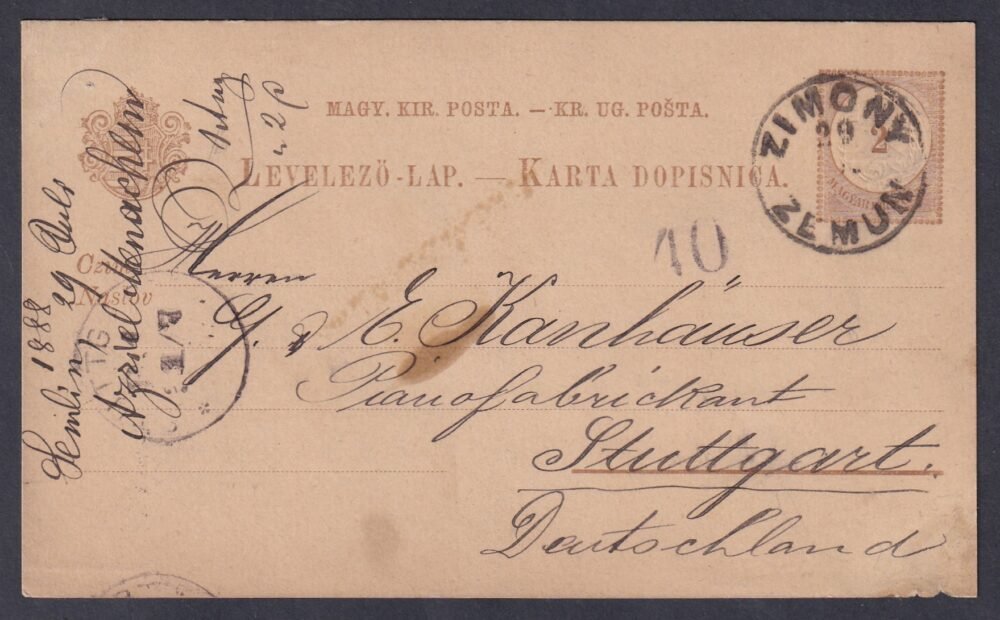 MAGY. KIR. POSTA. — KR. UG. POŠTA.
LEVELEZÖ-LAP. — KARTA DOPISNICA.
ZIMONY
29
ZEMUN
2
MAGYAR
10
Naslov
Herren
G. & E. Kanhäuser
Pianofabrickant
Stuttgart.
Deutschland
Semlin 29
1888
Azriel Menachem